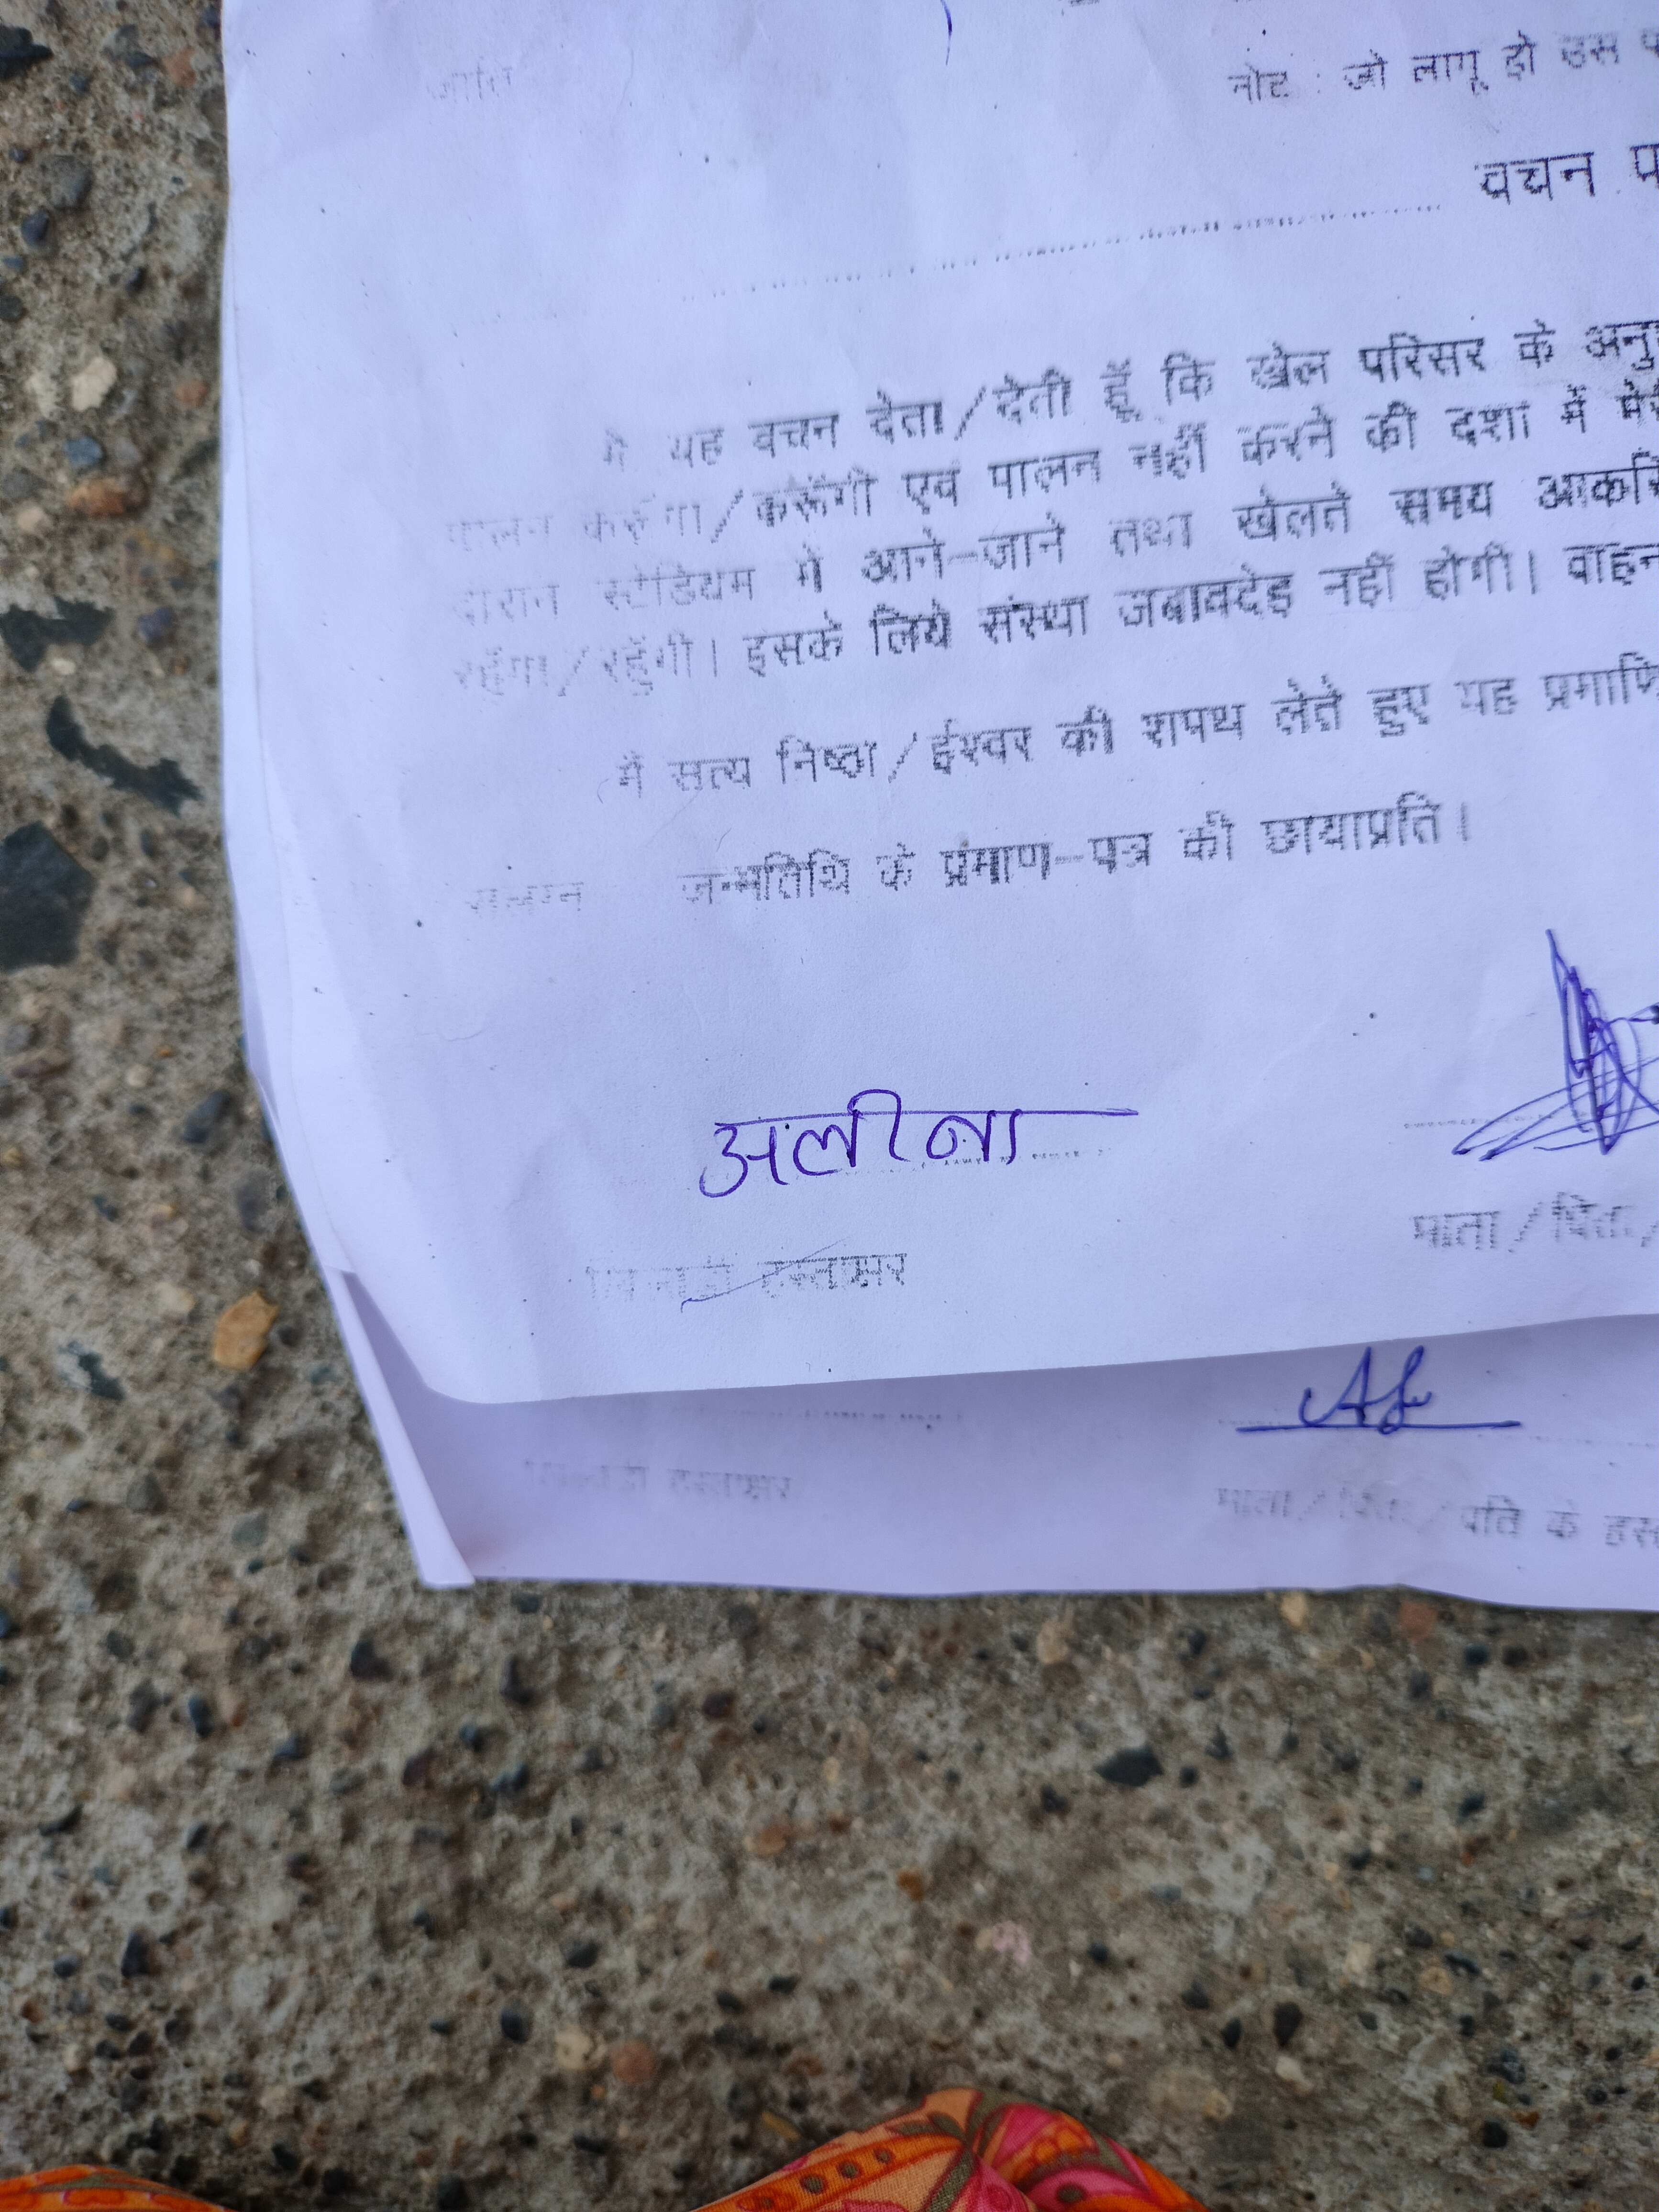 नोट : जो लागू हो उस
वचन
मैं यह वचन देता/देती हूँ कि खेल परिसर के
पालन करूंगा/करूँगी एवं पालन नहीं करने की दशा में
दौरान स्टेडियम में आने-जाने तथा खेलते समय
रहूँगा/रहूँगी। इसके लिये संस्था जबावदेह नहीं होगी। वाहन
मैं सत्य निष्ठा/ईश्वर की शपथ लेते हुए यह
संलग्न जन्मतिथि के प्रमाण-पत्र की छायाप्रति।
अलीना
माता/पिता/
हस्ताक्षर
पति के